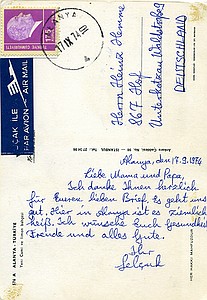 TÜRKİYE CUMHURİYETİ
ALANYA
17 IX 74
UÇAK İLE
PAR AVION
AIR MAIL
Herrn Heinz Hemme
867 Hof
Unterkotzau Waldstraße 9
DEUTSCHLAND
Alanya, den 17.9.1974
Liebe Mama und Papa,
Ich danke Ihnen herzlich
für Eueren lieben Brief, Es geht uns
gut. Hier in Alanya ist es ziemlich
heiß. Ich wünsche Euch Gesundheit
Freude und alles Gute.
Ihr
Selçuk
ALANYA - TURKEY